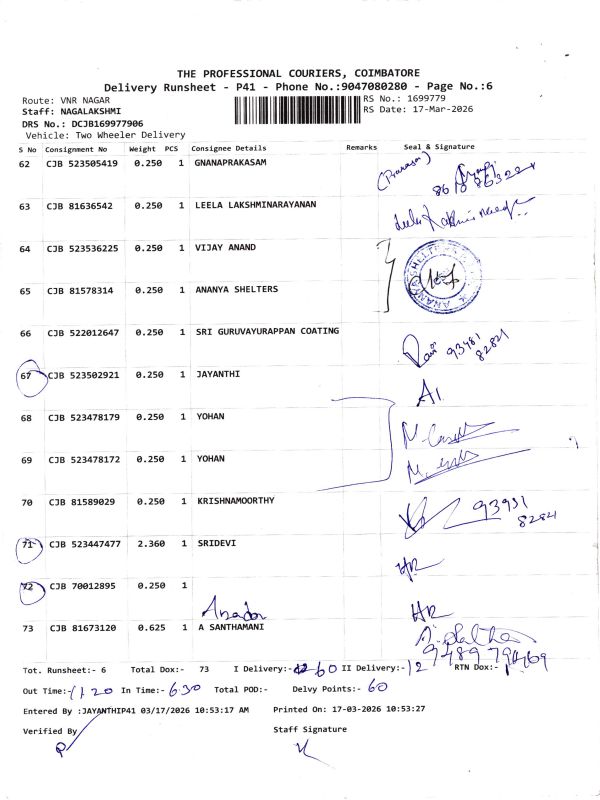 THE PROFESSIONAL COURIERS, COIMBATORE
Delivery Runsheet - P41 - Phone No.:9047080280 - Page No.:6
Route: VNR NAGAR RS No.: 1699779
Staff: NAGALAKSHMI RS Date: 17-Mar-2026
DRS No.: DCJB169977906
Vehicle: Two Wheeler Delivery
S No Consignment No Weight PCS Consignee Details Remarks Seal & Signature
62 CJB 523505419 0.250 1 GNANAPRAKASAM
63 CJB 81636542 0.250 1 LEELA LAKSHMINARAYANAN
64 CJB 523536225 0.250 1 VIJAY ANAND
65 CJB 81578314 0.250 1 ANANYA SHELTERS
66 CJB 522012647 0.250 1 SRI GURUVAYURAPPAN COATING
93481
82821
67 CJB 523502921 0.250 1 JAYANTHI
68 CJB 523478179 0.250 1 YOHAN
69 CJB 523478172 0.250 1 YOHAN
70 CJB 81589029 0.250 1 KRISHNAMOORTHY
93931
82821
71 CJB 523447477 2.360 1 SRIDEVI
72 CJB 70012895 0.250 1
73 CJB 81673120 0.625 1 A SANTHAMANI
Tot. Runsheet:- 6 Total Dox:- 73 I Delivery:- 60 II Delivery:- 12 RTN Dox:- 1
Out Time:- 11.20 In Time:- 6.30 Total POD:- Delvy Points:- 60
Entered By :JAYANTHIP41 03/17/2026 10:53:17 AM Printed On: 17-03-2026 10:53:27
Verified By Staff Signature